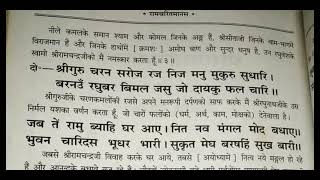 रामचरितमानस
नीले कमलके समान श्याम और कोमल जिनके अङ्ग हैं, श्रीसीताजी जिनके वाम-भागमें
विराजमान हैं और जिनके हाथोंमें [क्रमशः] अमोघ बाण और सुन्दर धनुष है, उन रघुवंशके
स्वामी श्रीरामचन्द्रजीको मैं नमस्कार करता हूँ॥ ३॥
दो०— श्रीगुरु चरन सरोज रज निज मनु मुकुरु सुधारि।
बरनउँ रघुबर बिमल जसु जो दायकु फल चारि॥
श्रीगुरुजीके चरणकमलोंकी रजसे अपने मनरूपी दर्पणको साफ करके मैं श्रीरघुनाथजीके उस
निर्मल यशका वर्णन करता हूँ, जो चारों फलोंको (धर्म, अर्थ, काम, मोक्षको) देनेवाला है।
जब तें रामु ब्याहि घर आए। नित नव मंगल मोद बधाए॥
भुवन चारिदस भूधर भारी। सुकृत मेघ बरषहिं सुख बारी॥
जबसे श्रीरामचन्द्रजी विवाह करके घर आये, तबसे [अयोध्यामें] नित्य नये मङ्गल हो रहे